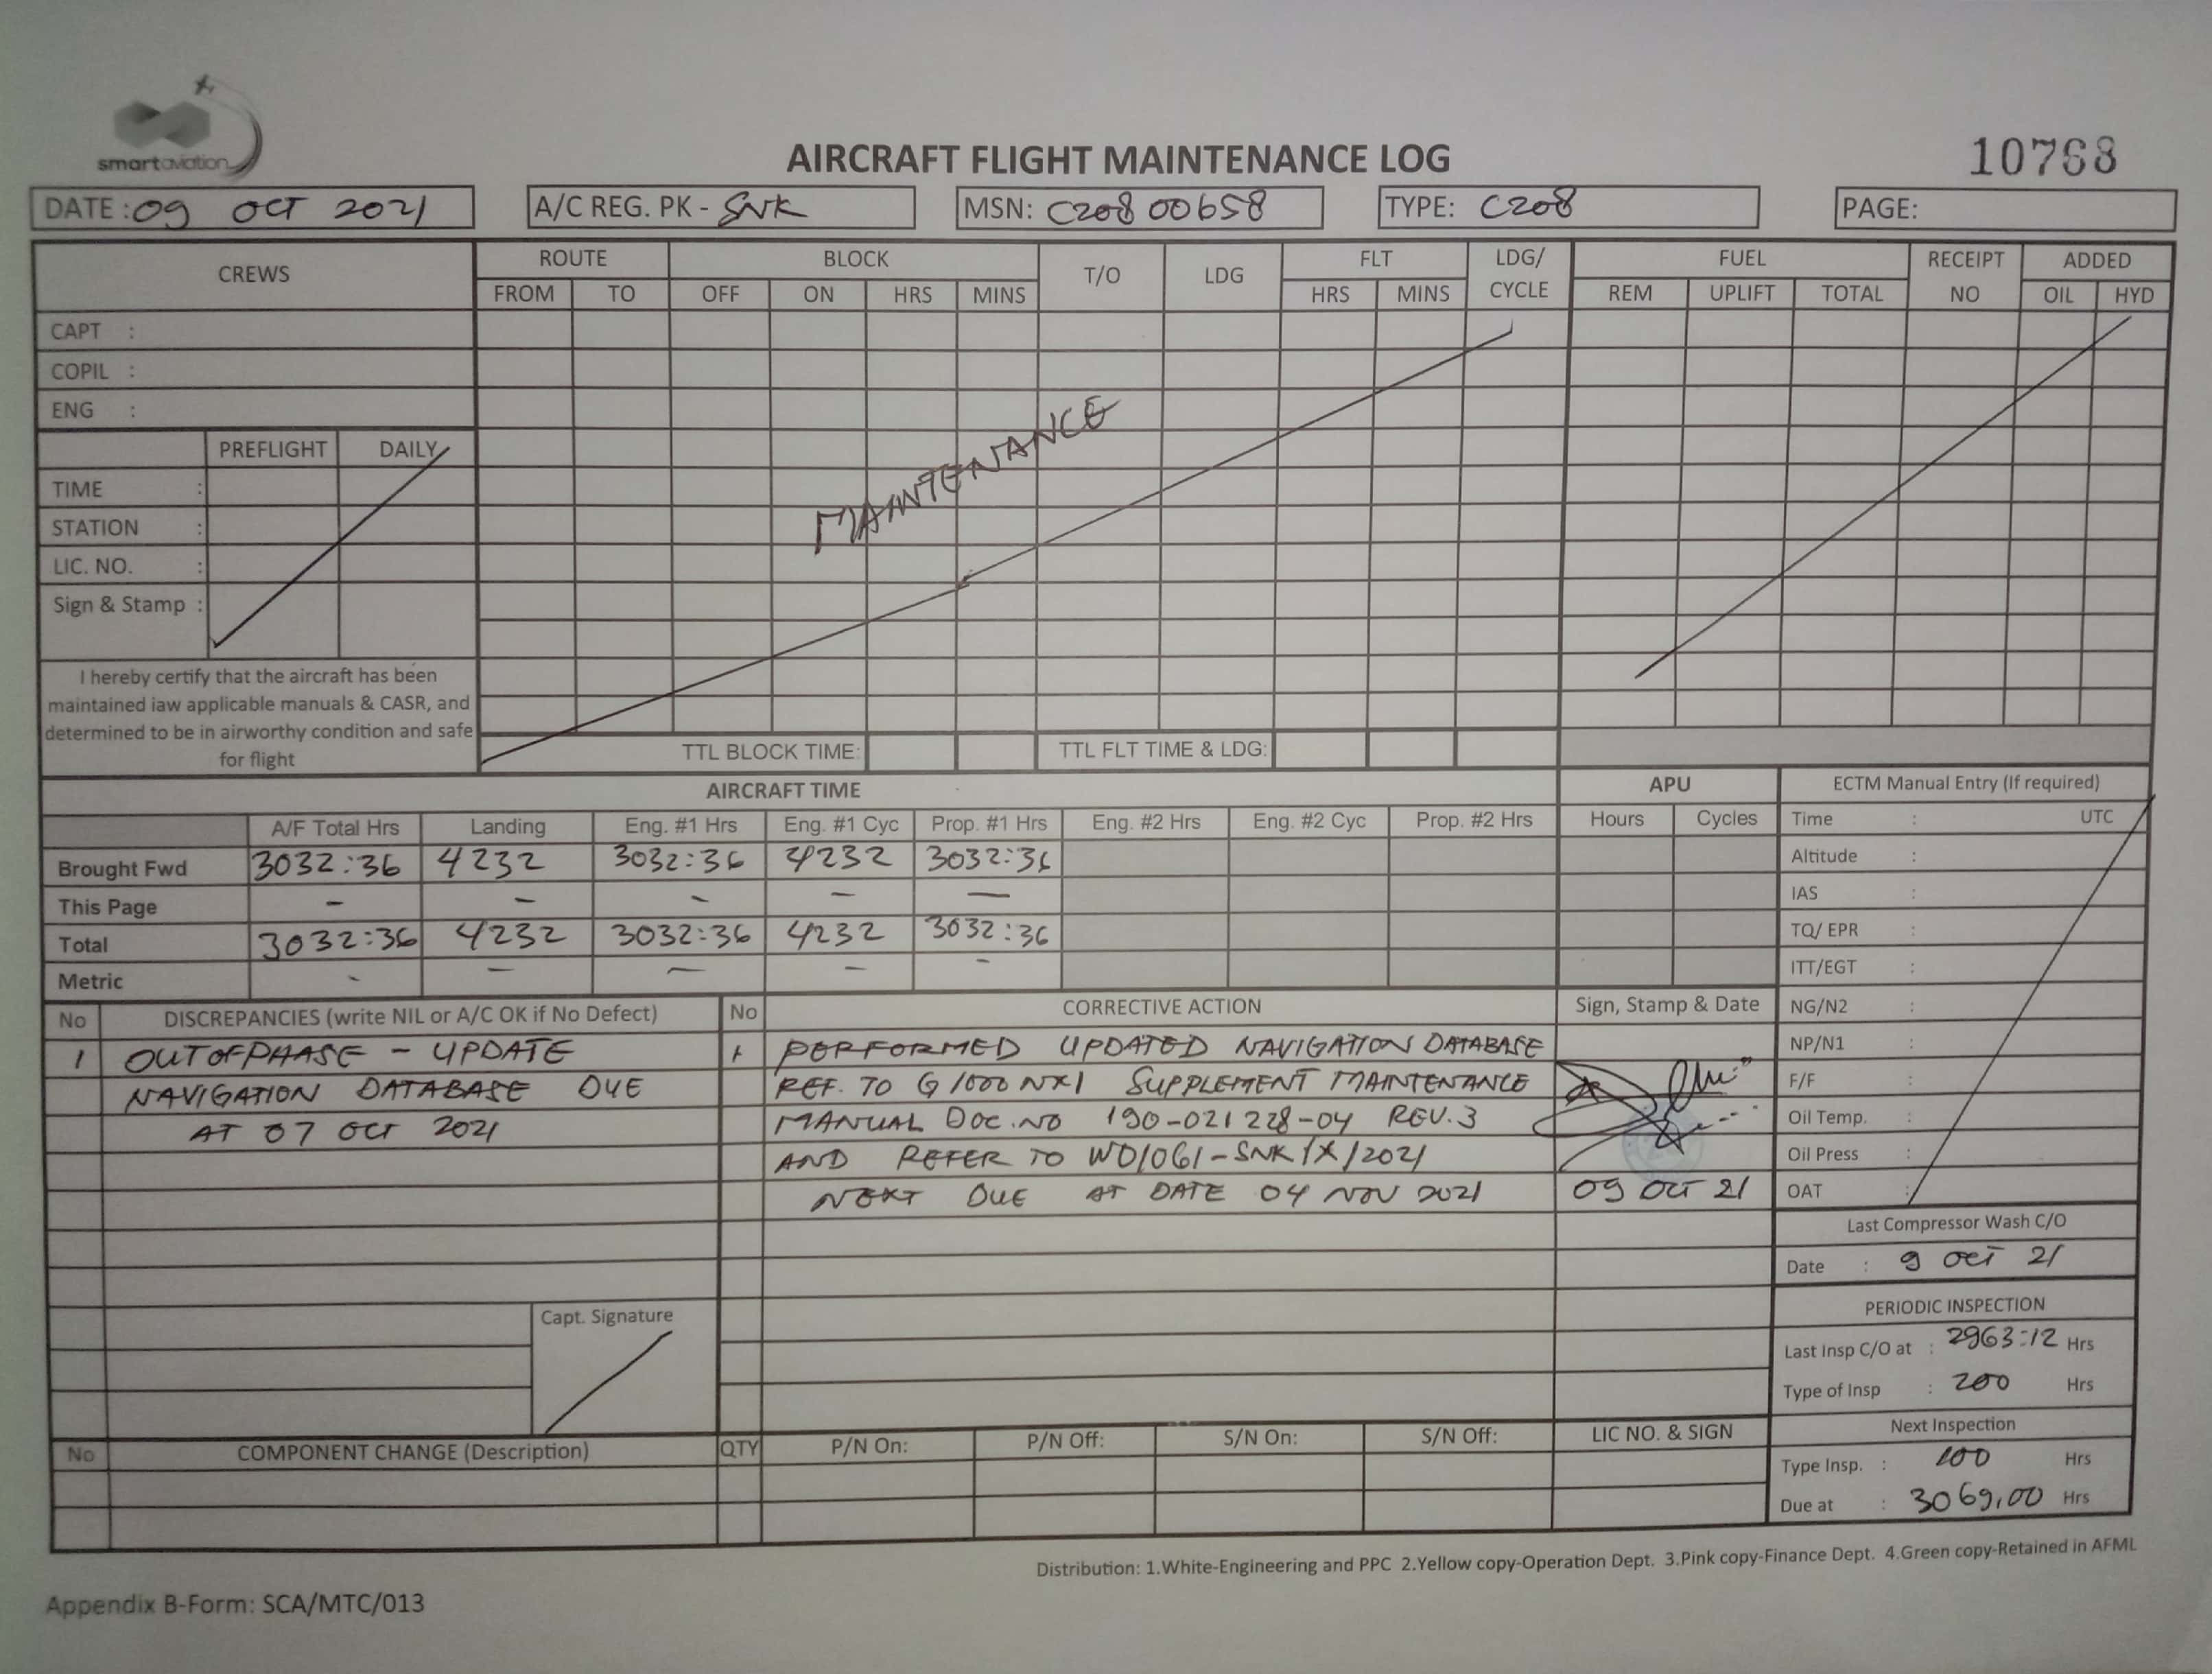 smartaviation
AIRCRAFT FLIGHT MAINTENANCE LOG
10768
DATE : 09 OCT 2021
A/C REG. PK - SNK
MSN: C208 00658
TYPE: C208
PAGE:
CREWS
ROUTE BLOCK T/O LDG FLT LDG/ CYCLE FUEL RECEIPT NO ADDED
FROM TO OFF ON HRS MINS HRS MINS REM UPLIFT TOTAL OIL HYD
CAPT :
COPIL :
ENG :
PREFLIGHT DAILY
TIME :
STATION :
LIC. NO. :
Sign & Stamp :
MAINTENANCE
I hereby certify that the aircraft has been
maintained iaw applicable manuals & CASR, and
determined to be in airworthy condition and safe
for flight
TTL BLOCK TIME: TTL FLT TIME & LDG:
AIRCRAFT TIME
A/F Total Hrs Landing Eng. #1 Hrs Eng. #1 Cyc Prop. #1 Hrs Eng. #2 Hrs Eng. #2 Cyc Prop. #2 Hrs
Brought Fwd 3032:36 4232 3032:36 4232 3032:36
This Page - - - - -
Total 3032:36 4232 3032:36 4232 3032:36
Metric - - - - -
APU
Hours Cycles
ECTM Manual Entry (If required)
Time : UTC
Altitude :
IAS :
TQ/ EPR :
ITT/EGT :
NG/N2 :
NP/N1 :
F/F :
Oil Temp. :
Oil Press :
OAT :
No DISCREPANCIES (write NIL or A/C OK if No Defect)
1 OUT OF PHASE - UPDATE
NAVIGATION DATABASE DUE
AT 07 OCT 2021
Capt. Signature
No CORRECTIVE ACTION
1 PERFORMED UPDATED NAVIGATION DATABASE
REF. TO G1000 NXI SUPPLEMENT MAINTENANCE
MANUAL DOC.NO 190-021228-04 REV.3
AND REFER TO WO/061-SNK/X/2021
NEXT DUE AT DATE 04 NOV 2021
Sign, Stamp & Date
09 OCT 21
Last Compressor Wash C/O
Date : 9 OCT 21
PERIODIC INSPECTION
Last Insp C/O at : 2963:12 Hrs
Type of Insp : 200 Hrs
Next Inspection
Type Insp. : 100 Hrs
Due at : 3069,00 Hrs
No COMPONENT CHANGE (Description) QTY P/N On: P/N Off: S/N On: S/N Off: LIC NO. & SIGN
Distribution: 1.White-Engineering and PPC 2.Yellow copy-Operation Dept. 3.Pink copy-Finance Dept. 4.Green copy-Retained in AFML
Appendix B-Form: SCA/MTC/013